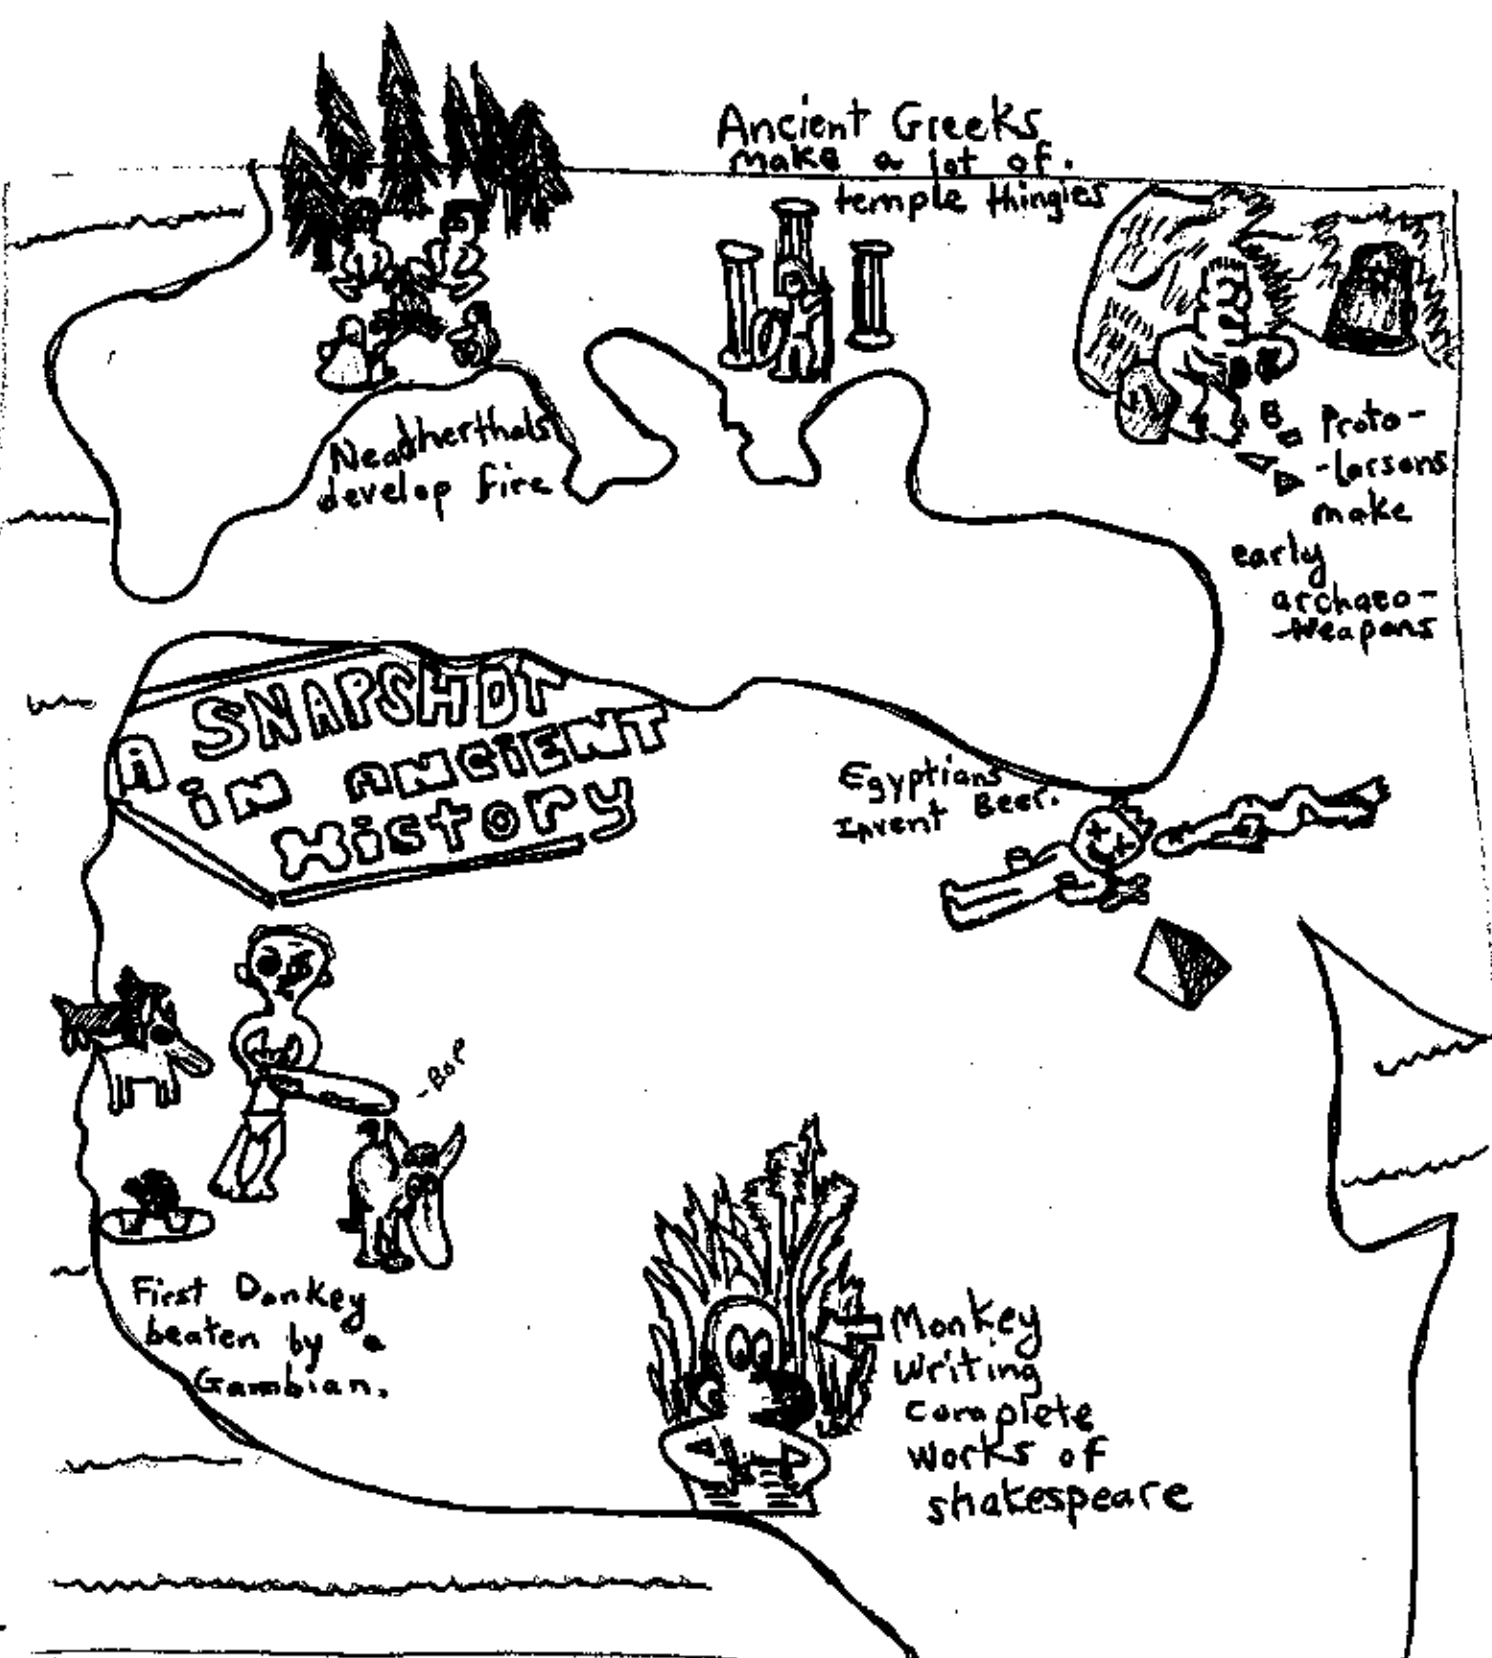 Ancient Greeks
make a lot of.
temple thingies
Neadherthals
develop fire
Proto-
-larsons
make
early
archaeo-
-Weapons
A SNAPSHOT
in ANCiENT
History
Egyptians
Invent Beer.
-BOP
First Donkey
beaten by a
Gambian.
Monkey
Writing
complete
works of
shakespeare